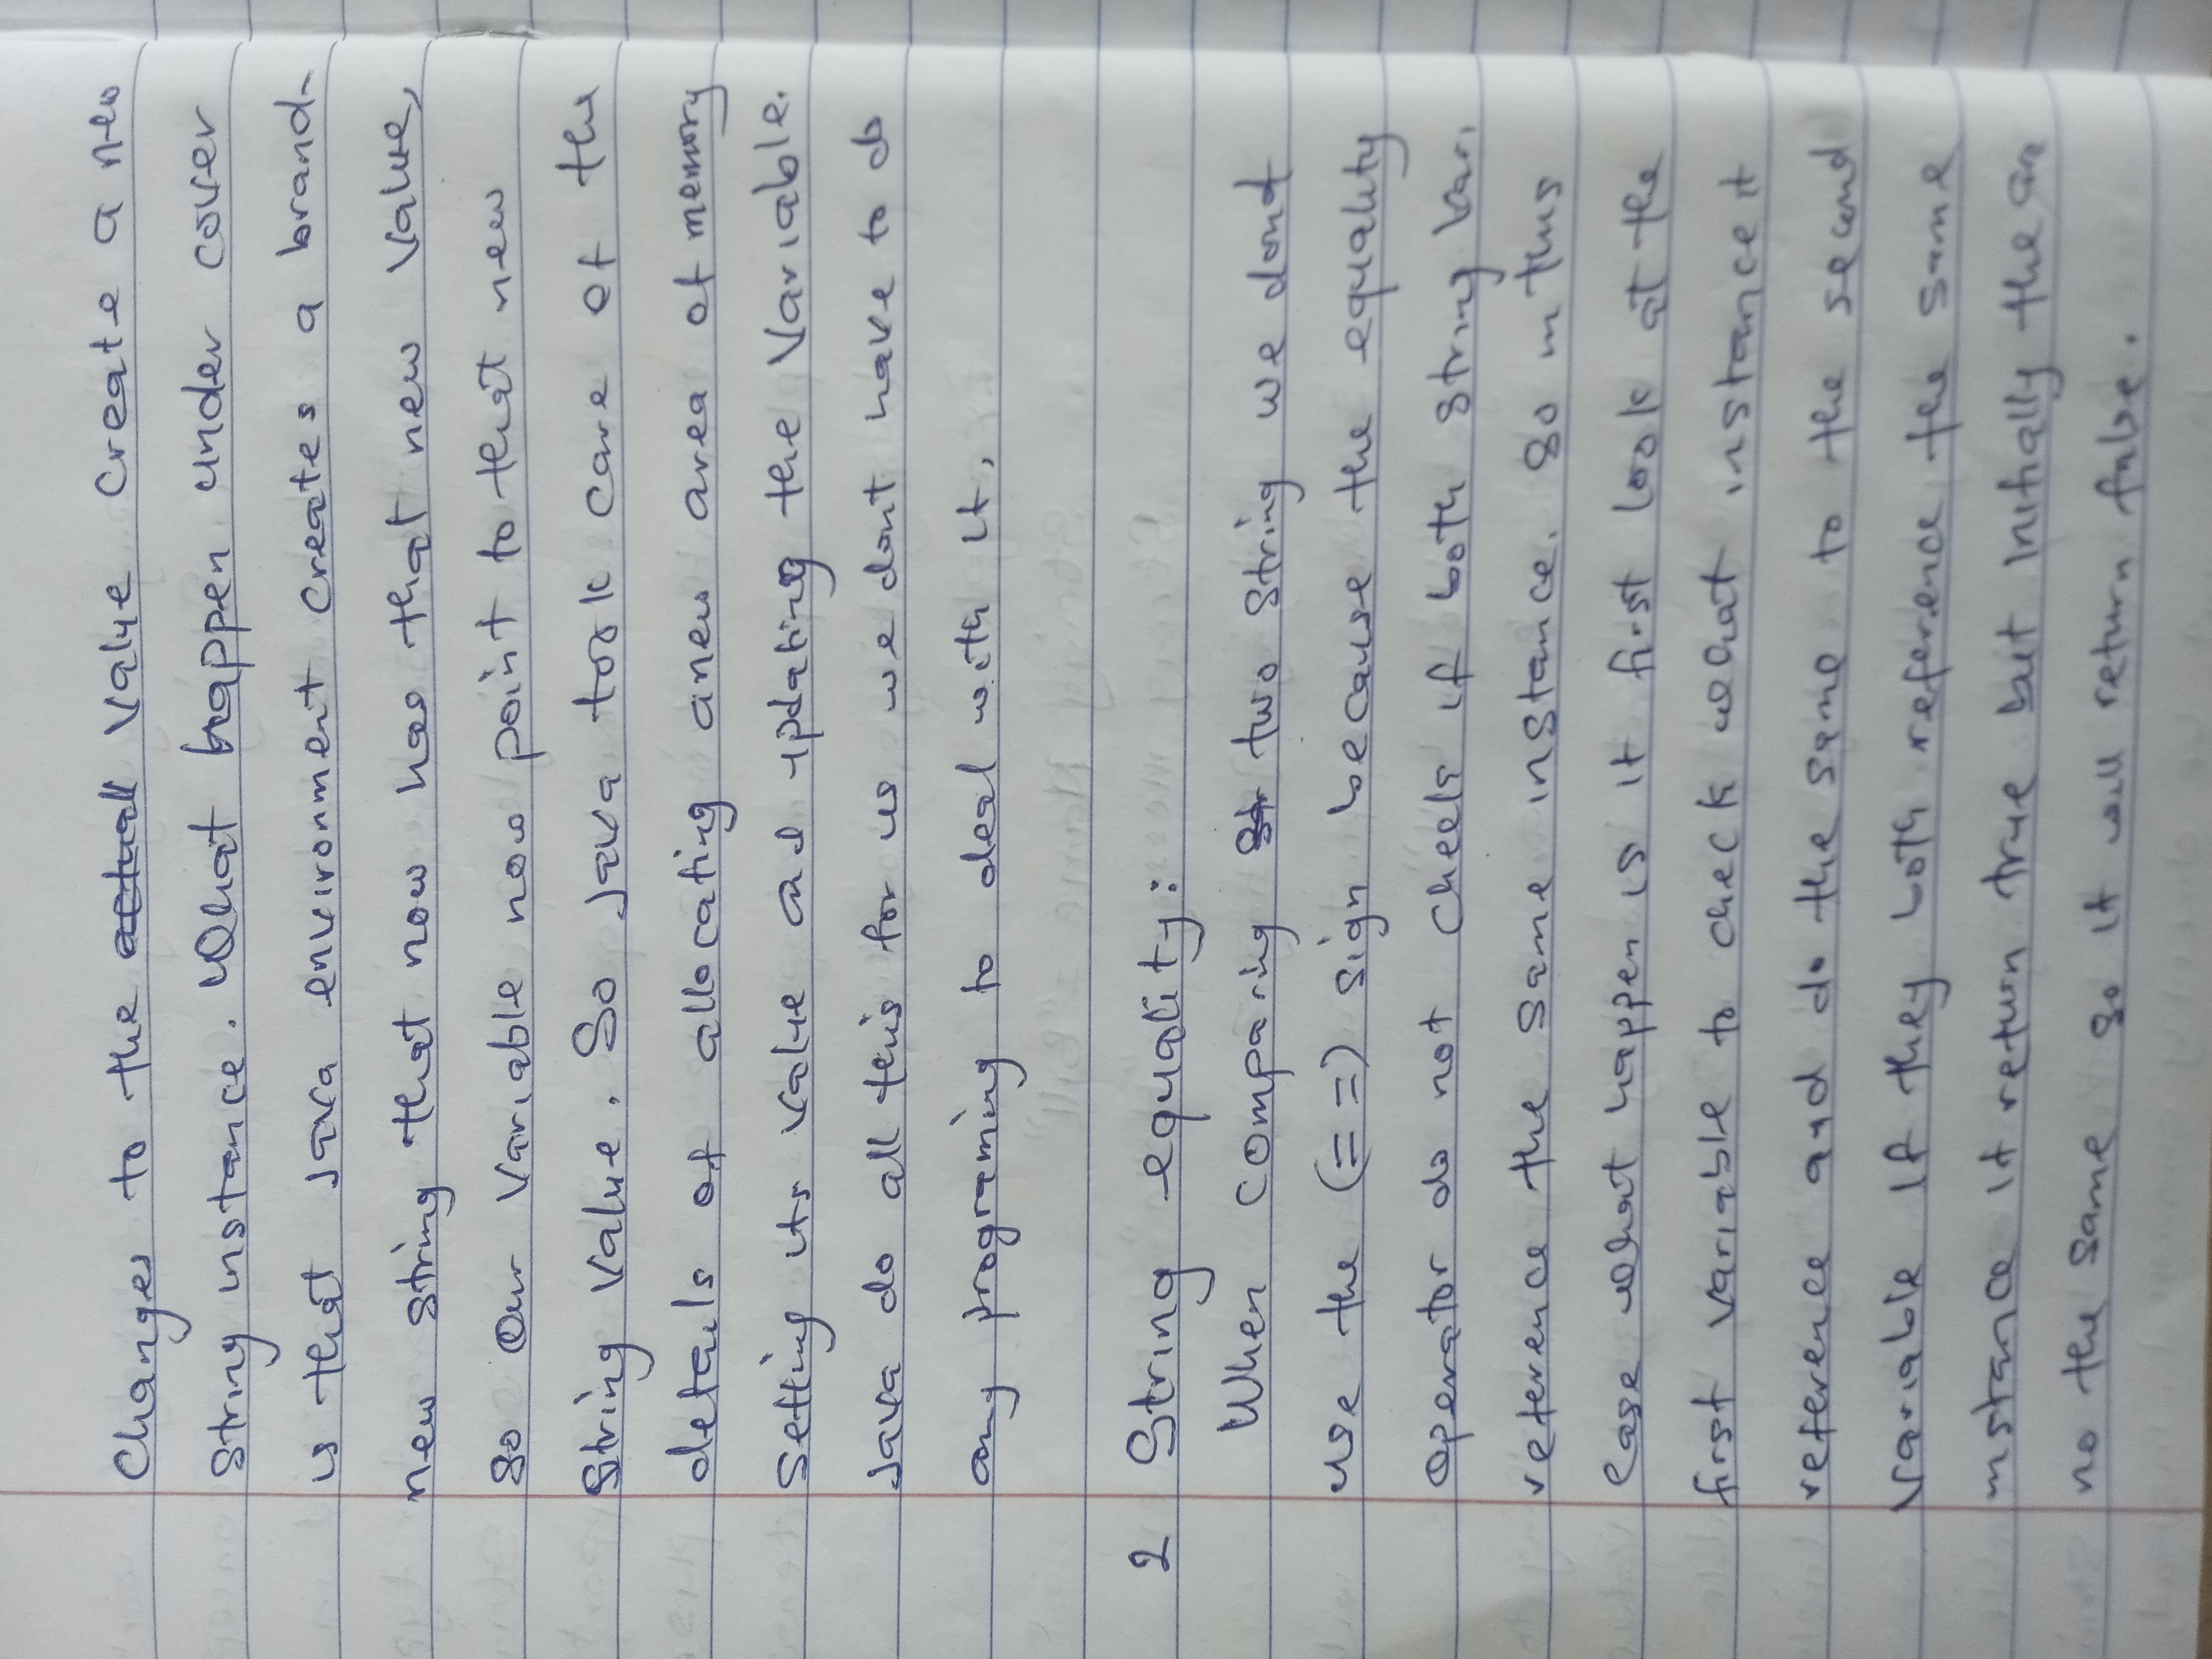 Changes to the actual value create a new
String instance. What happen under cover
is that Java environment creates a brand-
new string that now has that new value,
So our variable now point to that new
String value. So Java took care of the
details of allocating a new area of memory
Setting its value and updating the variable.
Java do all this for us we dont have to do
any programing to deal with it.
2 String equality:
When comparing str two string we dont
use the (==) sign because the equality
operator do not cheels if both string var.
reference the same instance. So in this
Case what happen is it first look at the
first variable to check what instance it
reference and do the same to the second
variable if they both reference the same
instance it return true but initially the
no the same so it will return false.